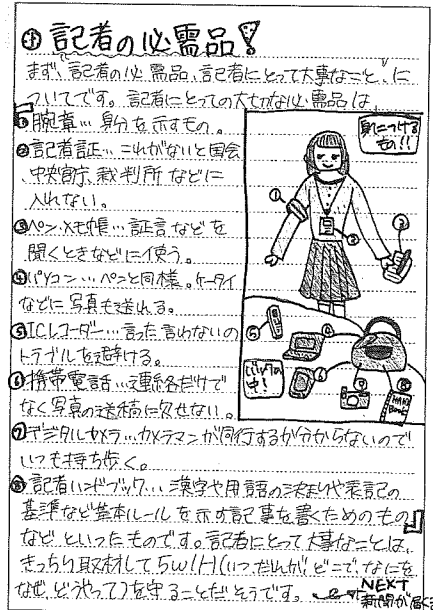 記者の必需品!
まず、「記者の必需品、記者にとって大事なこと」に
ついてです。記者にとっての大切な必需品は、
『①腕章…身分を示すもの。
②記者証…これがないと国会
、中央省庁、裁判所などに
入れない。
③ペン・メモ帳…証言などを
聞くときなどに使う。
④パソコン…ペンと同様。ケータイ
などに写真も送れる。
⑤ICレコーダー…言った言わないの
トラブルを避ける。
⑥携帯電話…連絡だけで
なく写真の送稿に欠せない。
⑦デジタルカメラ…カメラマンが同行するか分からないので
いつも持ち歩く。
⑧記者ハンドブック…漢字や用語の決まりや表記の
基準など基本ルールを示す記事を書くためのもの』
など、といったものです。記者にとって大事なことは、
きっちり取材して、5W1H(いつ、だれが、どこで、なにを
なぜ、どうやって)を守ることだそうです。
NEXT
新聞が届く
身につける
もの!!
①
②
③
バッグの
中!
⑤
④
⑥
⑦
⑧
HAND
Book